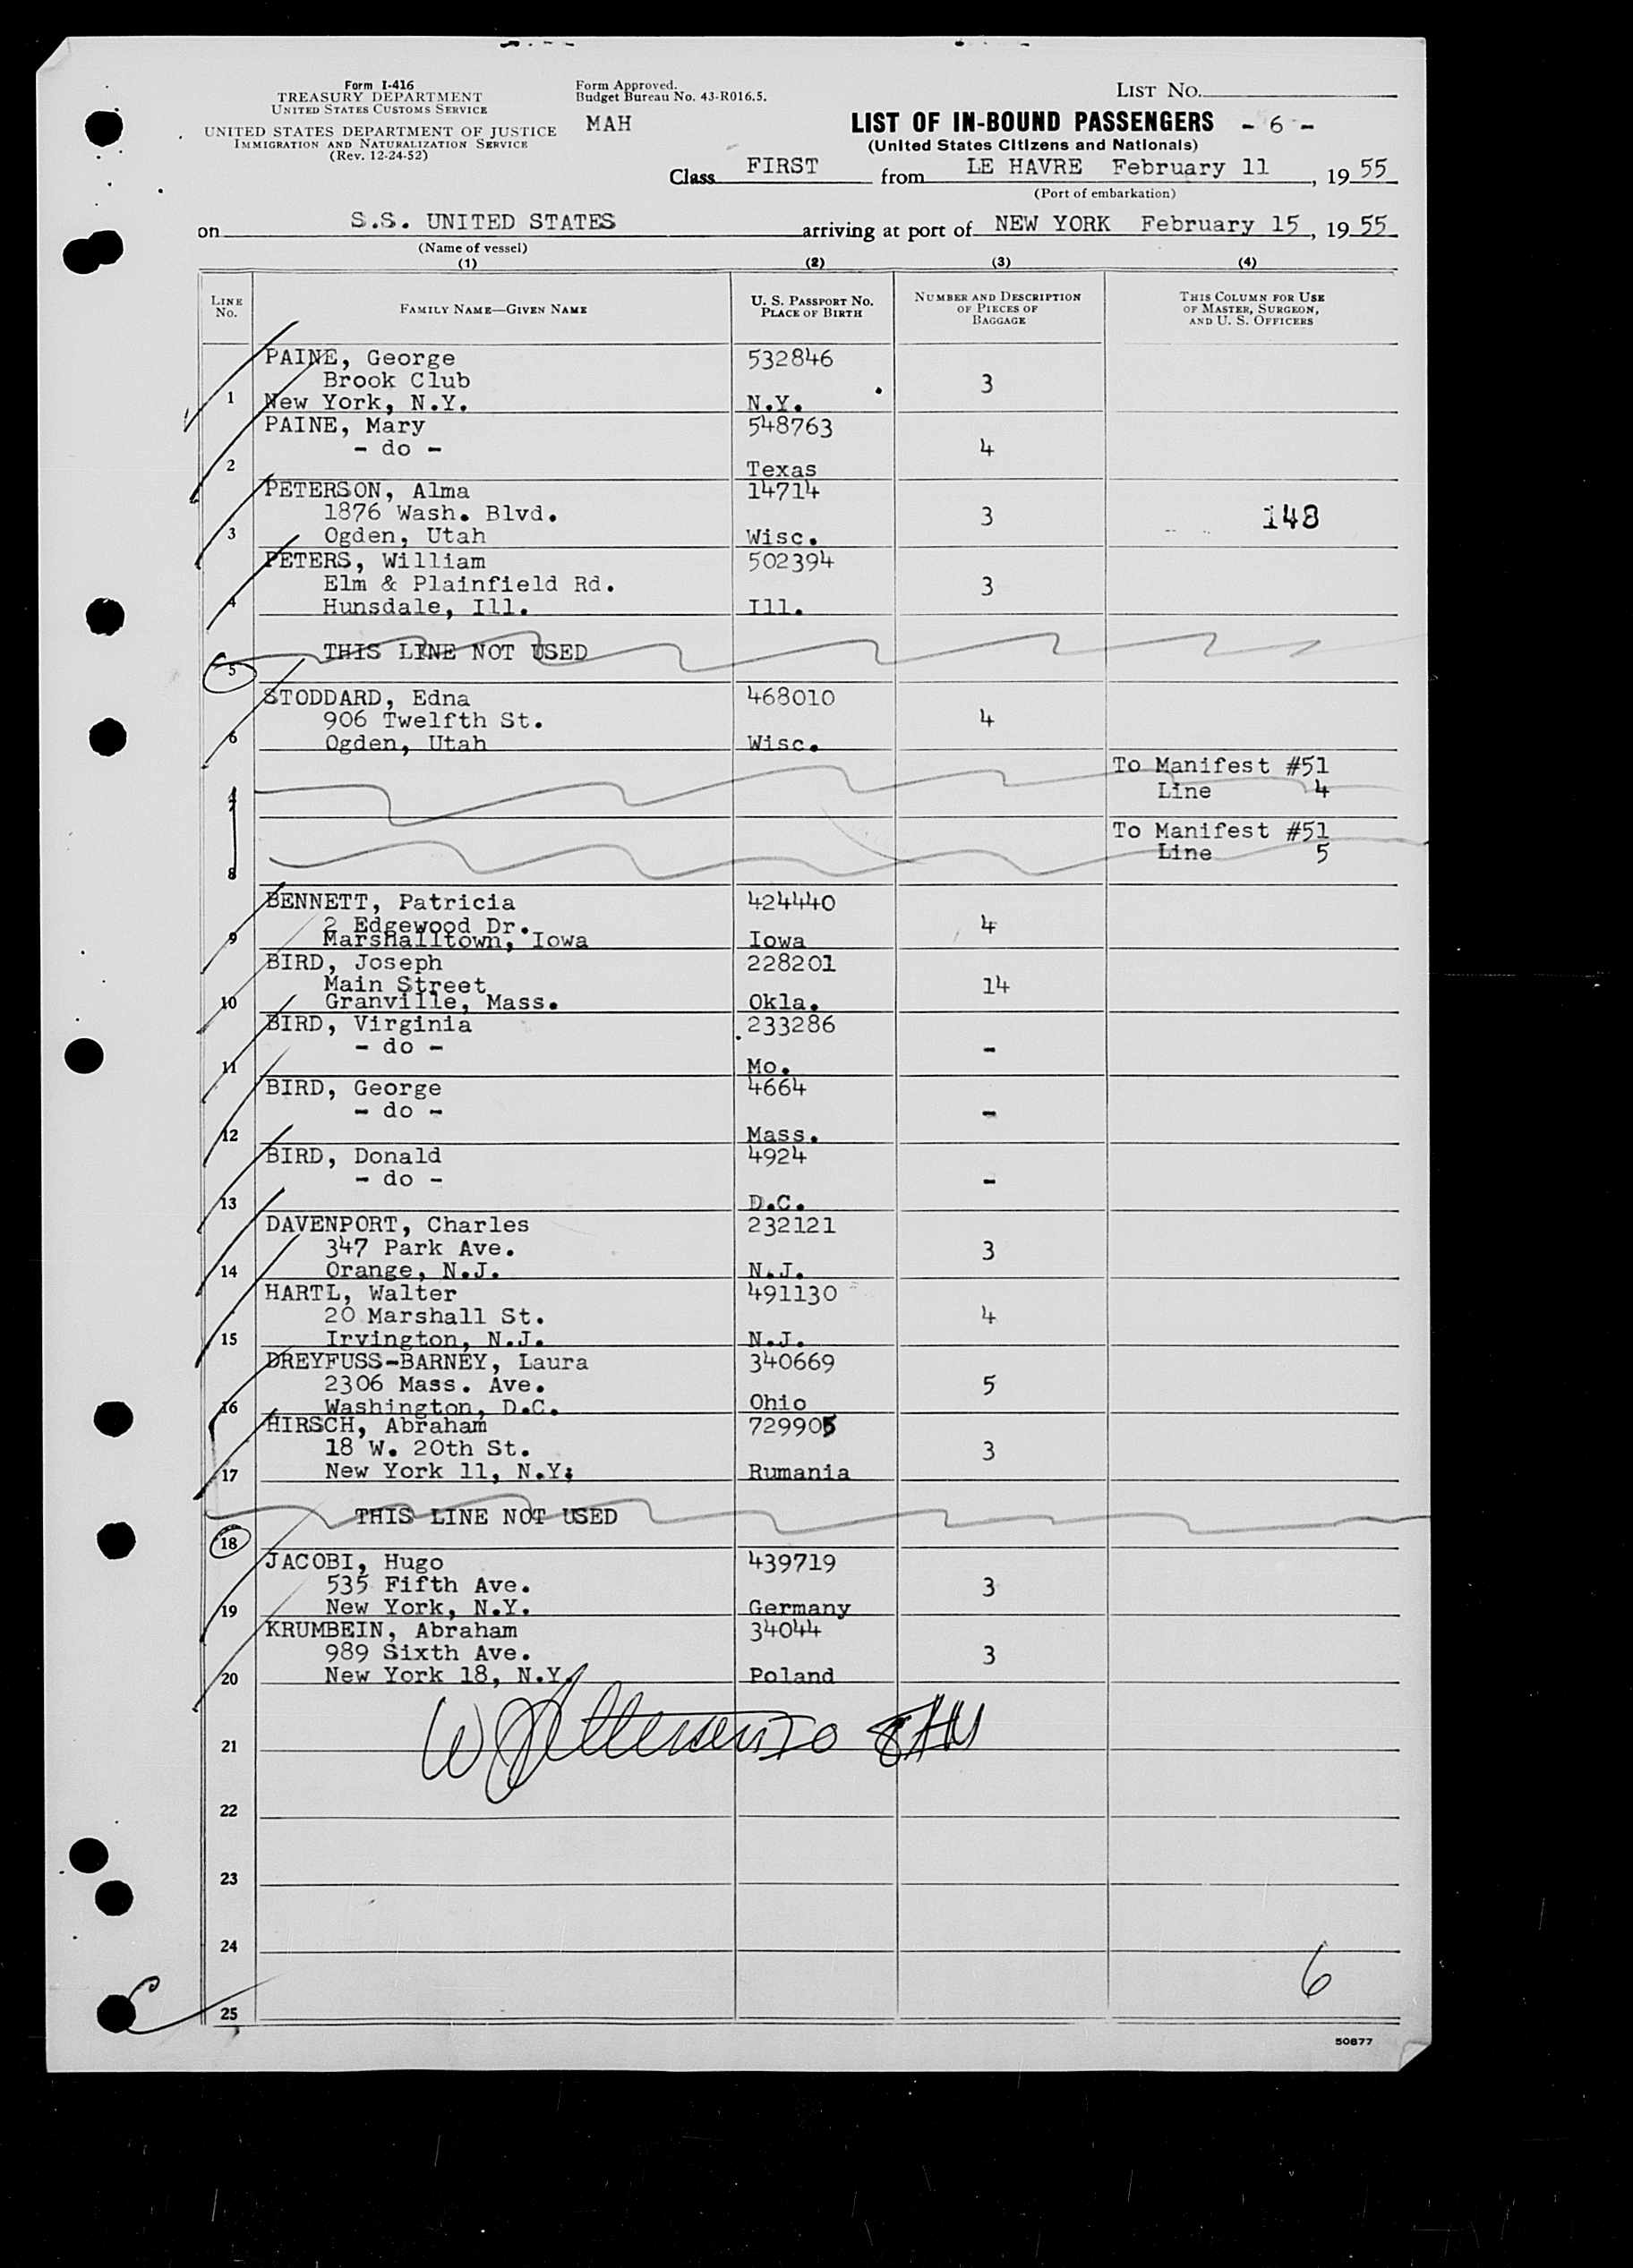 Form I-416
TREASURY DEPARTMENT
UNITED STATES CUSTOMS SERVICE
UNITED STATES DEPARTMENT OF JUSTICE
IMMIGRATION AND NATURALIZATION SERVICE
(Rev. 12-24-52)
Form Approved.
Budget Bureau No. 43-R016.5.
MAH
LIST NO.
LIST OF IN-BOUND PASSENGERS - 6 -
(United States Citizens and Nationals)
Class FIRST from LE HAVRE February 11, 19 55
(Port of embarkation)
on S.S. UNITED STATES arriving at port of NEW YORK February 15, 19 55
(Name of vessel)
(1) (2) (3) (4)
LINE NO. FAMILY NAME—GIVEN NAME U. S. PASSPORT NO. PLACE OF BIRTH NUMBER AND DESCRIPTION OF PIECES OF BAGGAGE THIS COLUMN FOR USE OF MASTER, SURGEON, AND U. S. OFFICERS
PAINE, George 532846
Brook Club 3
1 New York, N.Y. N.Y.
PAINE, Mary 548763
- do - 4
2 Texas
PETERSON, Alma 14714
1876 Wash. Blvd. 3 148
3 Ogden, Utah Wisc.
PETERS, William 502394
Elm & Plainfield Rd. 3
4 Hunsdale, Ill. Ill.
THIS LINE NOT USED
5
STODDARD, Edna 468010
906 Twelfth St. 4
6 Ogden, Utah Wisc.
To Manifest #51
7 Line 4
To Manifest #51
Line 5
8
BENNETT, Patricia 424440
2 Edgewood Dr. 4
9 Marshalltown, Iowa Iowa
BIRD, Joseph 228201
Main Street 14
10 Granville, Mass. Okla.
BIRD, Virginia 233286
- do - -
11 Mo.
BIRD, George 4664
- do - -
12 Mass.
BIRD, Donald 4924
- do - -
13 D.C.
DAVENPORT, Charles 232121
347 Park Ave. 3
14 Orange, N.J. N.J.
HARTL, Walter 491130
20 Marshall St. 4
15 Irvington, N.J. N.J.
DREYFUSS-BARNEY, Laura 340669
2306 Mass. Ave. 5
16 Washington, D.C. Ohio
HIRSCH, Abraham 729905
18 W. 20th St. 3
17 New York 11, N.Y; Rumania
THIS LINE NOT USED
18
JACOBI, Hugo 439719
535 Fifth Ave. 3
19 New York, N.Y. Germany
KRUMBEIN, Abraham 34044
989 Sixth Ave. 3
20 New York 18, N.Y. Poland
21
22
23
24
6
25
50877